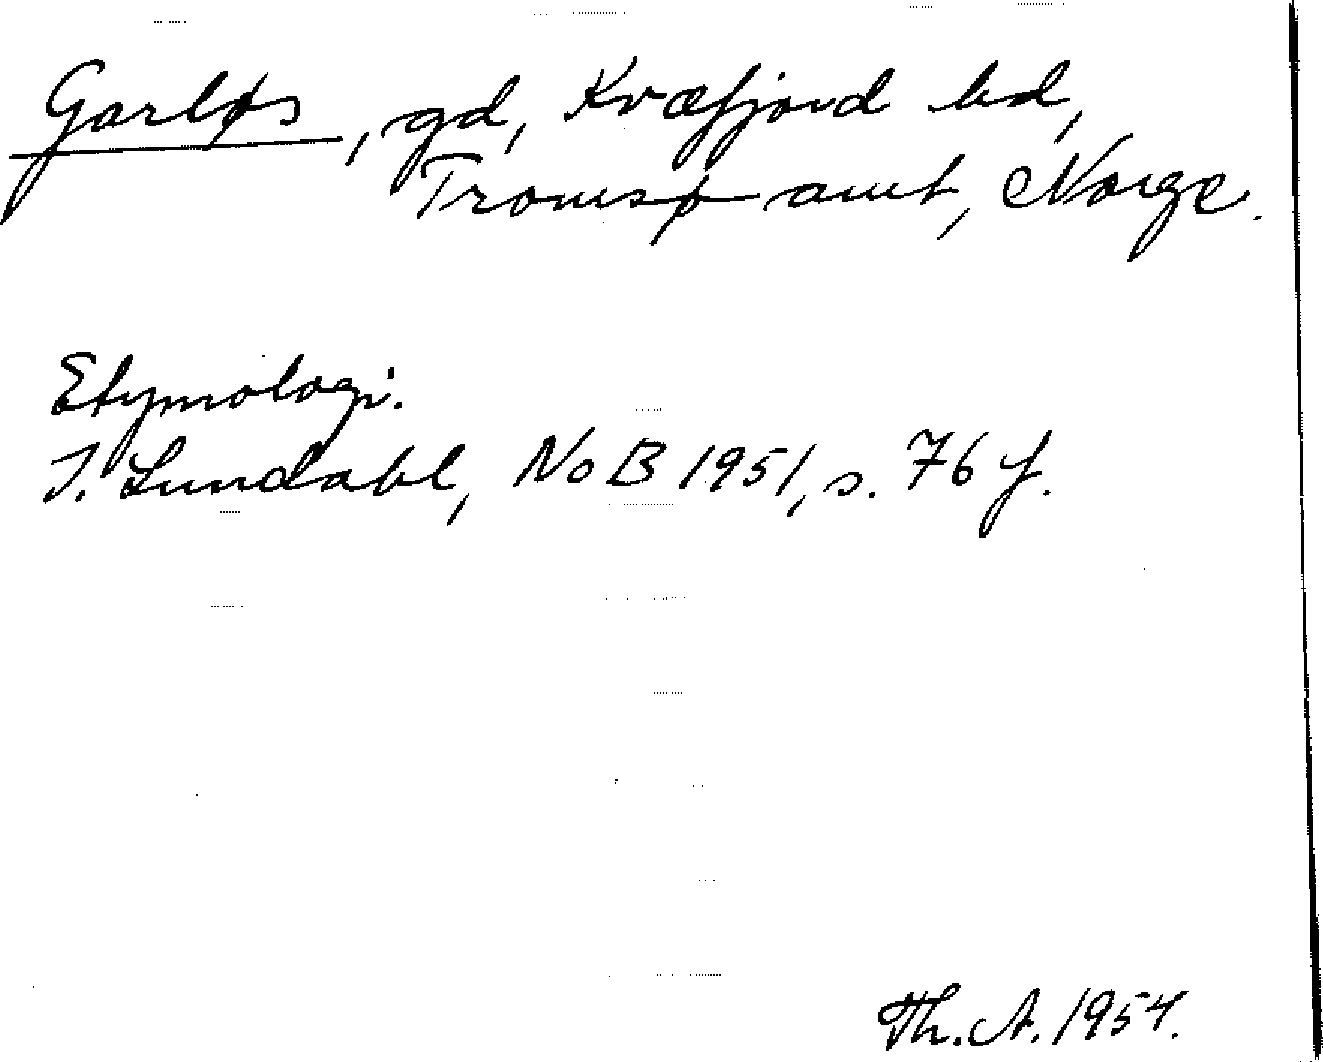 Garløs, gd, Kvæfjord hd,
Tromsø amt, Norge.
Etymologi.
I. Lundahl, NoB 1951, s. 76 f.
Th. A. 1954.